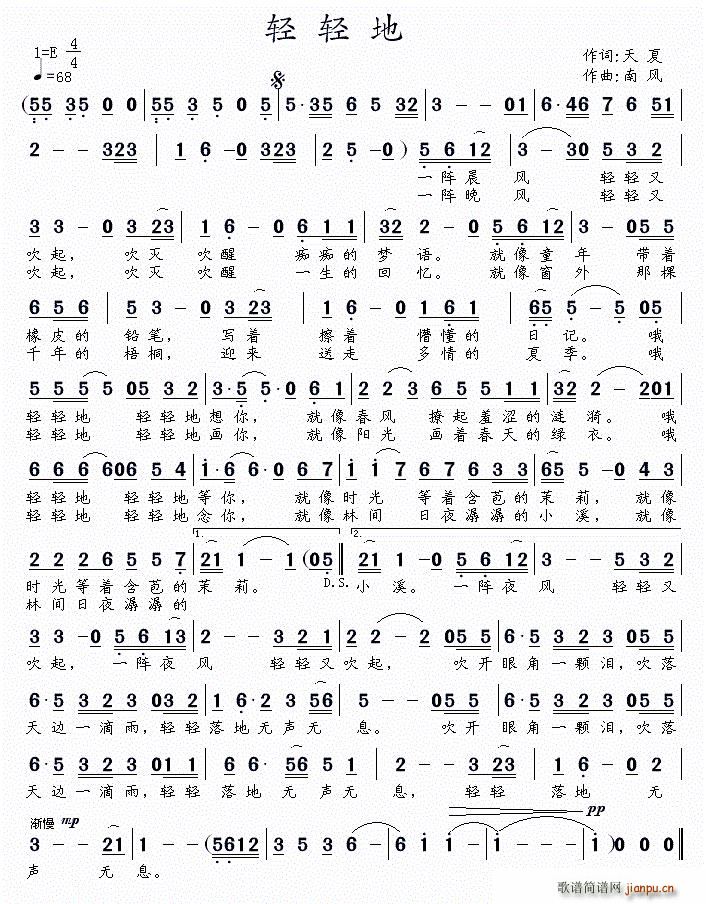 轻轻地
1=E 4/4
♩=68
作词:天夏
作曲:南风
(55 35 0 0 | 55 3 5 0 5 | 5·35 6 5 32 | 3 - - 01 | 6·46 7 6 51 |
2 - - 323 | 1 6 -0 323 | 2 5 -0 ) 5 6 12 | 3 -30 5 3 2 |
一阵晨风 轻轻又
一阵晚风 轻轻又
3 3 -0 3 23 | 1 6 -0 6 1 1 | 32 2 - 5 6 12 | 3 - -0 5 5 |
吹起， 吹灭 吹醒 痴痴的梦语。 就像童年 带着
吹起， 吹灭 吹醒 一生的回忆。 就像窗外 那棵
6 5 6 5 3 -0 3 23 | 1 6 -0 1 6 1 | 65 5 - 5 05 |
橡皮的 铅笔， 写着 擦着 懵懂的 日记。 哦
千年的 梧桐， 迎来 送走 多情的 夏季。 哦
5 5 5 5 05 3 2 | 3·5 5·0 6 1 | 2 2 3 6 5 5 1 1 | 32 2 -201 |
轻轻地 轻轻地想你， 就像春风 撩起羞涩的涟漪。 哦
轻轻地 轻轻地画你， 就像阳光 画着春天的绿衣。 哦
6 6 6 606 5 4 | i·6 6·0 6 7 | i i 7 6 7 6 3 3 | 65 5 -0 4 3 |
轻轻地 轻轻地等你， 就像时光 等着含苞的茉莉， 就像
轻轻地 轻轻地念你， 就像林间 日夜潺潺的小溪， 就像
2 2 2 6 5 5 7 | 1. 21 1 - 1 (05 | 2. 21 1 -0 5 6 12 | 3 - - 5 3 2 |
时光等着含苞的茉莉。 D.S. 小溪。 一阵夜风 轻轻又
林间日夜潺潺的
3 3 -0 5 6 13 | 2 - - 3 2 1 | 2 2 -2 05 5 | 6·5 3 2 3 05 5 |
吹起， 一阵夜风 轻轻又吹起， 吹开眼角一颗泪，吹落
6·5 3 2 3 03 2 | 1 6·2 3 56 | 5 - - 05 5 | 6·5 3 2 3 05 5 |
天边一滴雨，轻轻落地无声无息。 吹开眼角一颗泪，吹落
6·5 3 2 3 01 1 | 6 6·0 56 5 6 | 2 - - 323 | 1 6 -0 2 |
天边一滴雨，轻轻 落地 无声无息， 轻轻 落地 无
渐慢 mp pp
3 - - 21 | 1 - - (5612 | 3 5 3 6 - | 6 i i - | i - - i ) | 0 0 0 |
声 无息。
歌谱简谱网
jianpu.cn